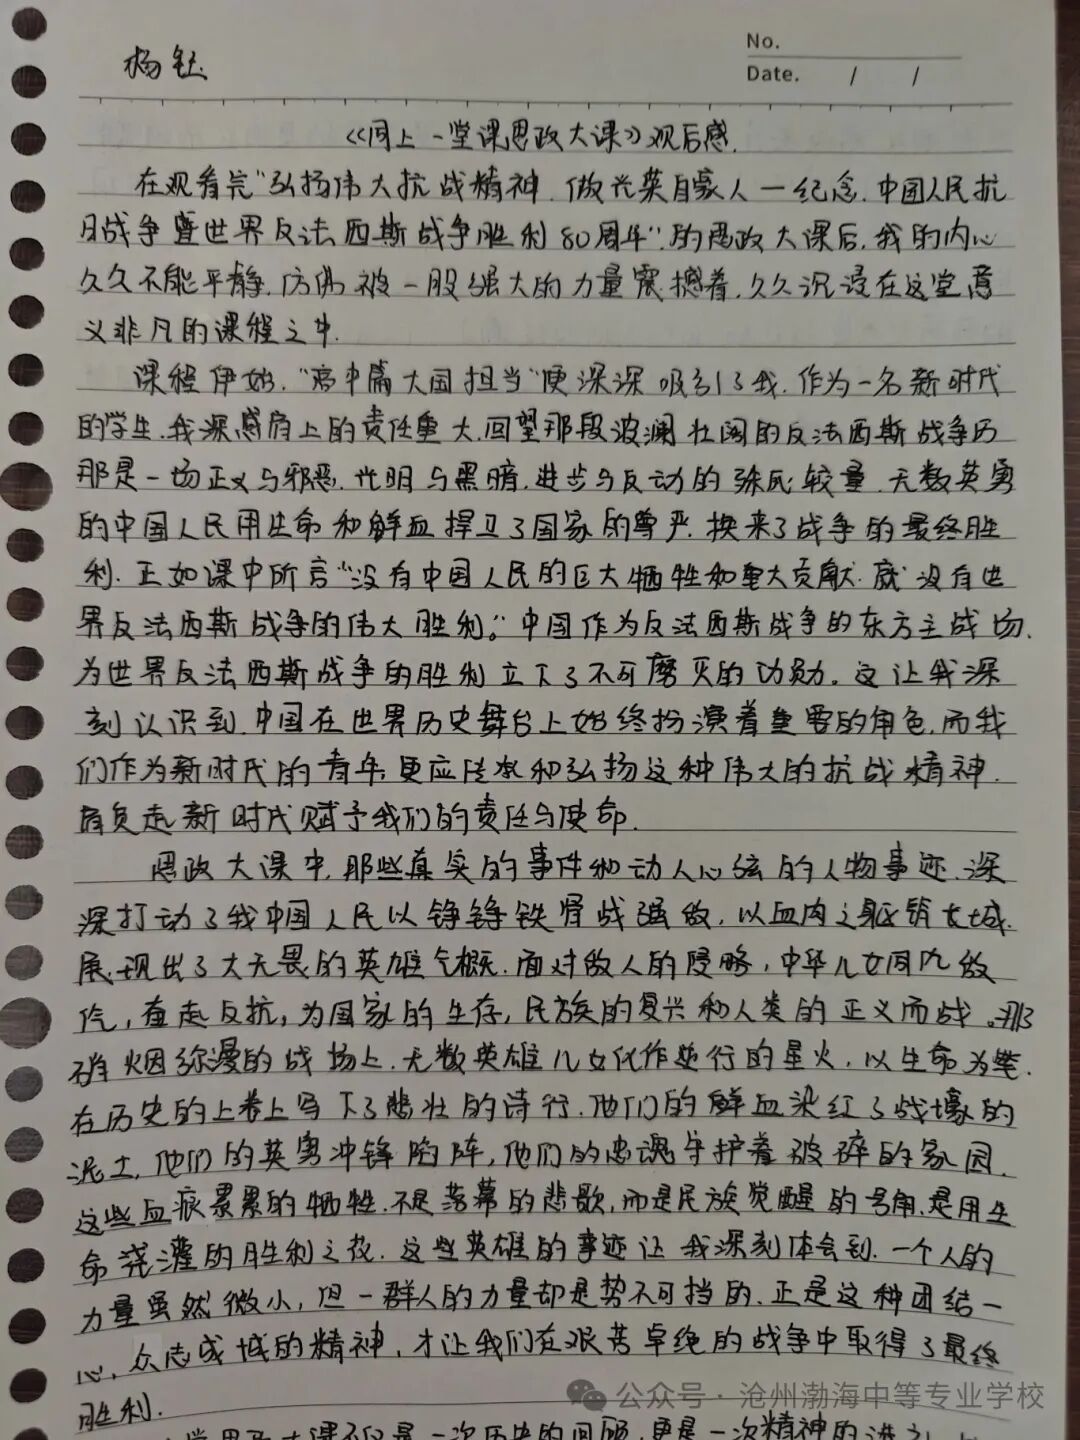 No.
杨钰
Date. / /
《同上一堂课思政大课》观后感.
在观看完“弘扬伟大抗战精神.做兴英自豪人一纪念.中国人民抗
日战争暨世界反法西斯战争胜利80周年”.的思政大课后,我的内心
久久不能平静.仿佛被一股强大的力量震撼着.久久沉浸在这堂意
义非凡的课程之中.
课程伊始.“高中篇大国担当”便深深吸引了我.作为一名新时代
的学生.我深感肩上的责任重大.回望那段波澜壮阔的反法西斯战争历
那是一场正义与邪恶.光明与黑暗.进步与反动的殊死较量.无数英勇
的中国人民用生命和鲜血捍卫了国家的尊严.换来了战争的最终胜
利.正如课中所言“没有中国人民的巨大牺牲和重大贡献.就没有世
界反法西斯战争的伟大胜利。”中国作为反法西斯战争的东方主战场.
为世界反法西斯战争的胜利立下了不可磨灭的功勋。这让我深
刻认识到.中国在世界历史舞台上始终扮演着重要的角色.而我
们作为新时代的青年.更应传承和弘扬这种伟大的抗战精神.
肩负起新时代赋予我们的责任与使命.
思政大课中,那些真实的事件和动人心弦的人物事迹.深
深打动了我中国人民以铮铮铁骨战强敌.以血肉之躯筑长城.
展现出了大无畏的英雄气概.面对敌人的侵略,中华儿女同仇敌
忾,奋起反抗,为国家的生存,民族的复兴和人类的正义而战。那
硝烟弥漫的战场上.无数英雄儿女化作逆行的星火,以生命为笔.
在历史的上卷上写下了悲壮的诗行.他们的鲜血染红了战壕的
泥土.他们的英勇冲锋陷阵,他们的忠魂守护着破碎的家园.
这些血痕累累的牺牲.不是落幕的悲歌,而是民族觉醒的号角.是用生
命浇灌的胜利之花.这些英雄的事迹让我深刻体会到.一个人的
力量虽然微小,但一群人的力量却是势不可挡的.正是这种团结一
心,众志成城的精神,才让我们在艰苦卓绝的战争中取得了最终
胜利.
公众号·沧州渤海中等专业学校
不仅是一次历史的回顾,更是一次精神的洗礼